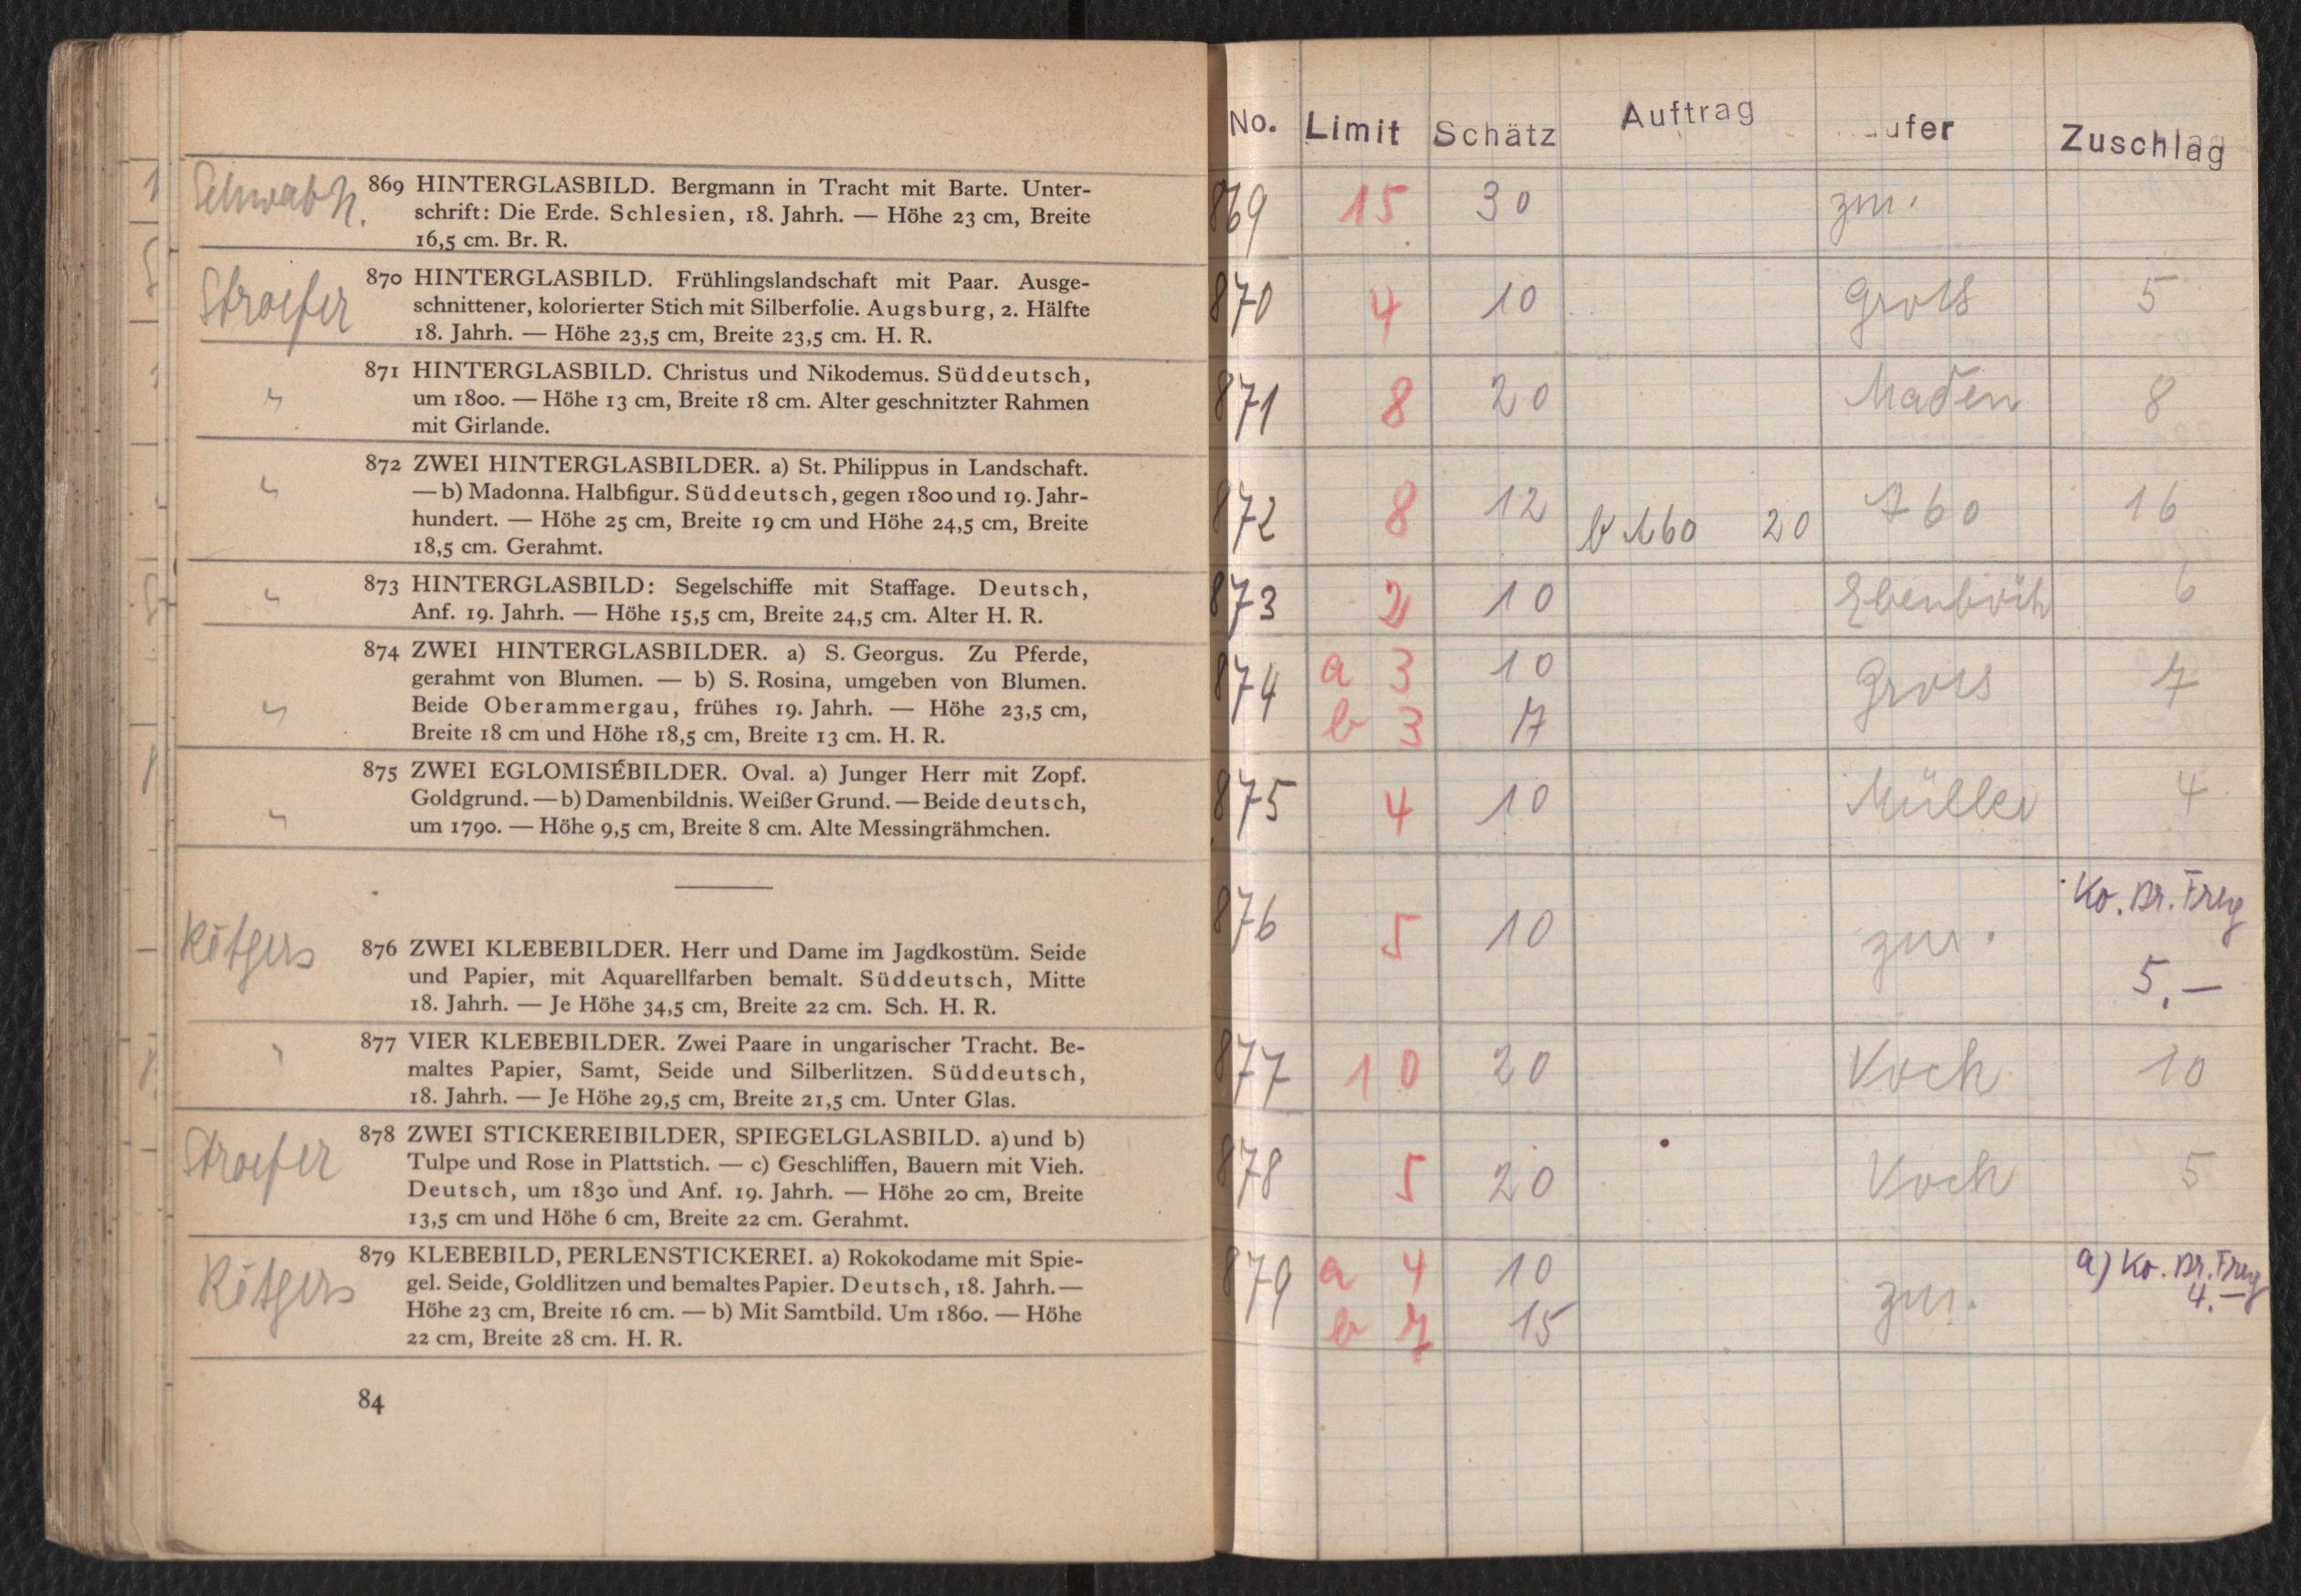 Schwab H.
869 HINTERGLASBILD. Bergmann in Tracht mit Barte. Unter-
schrift: Die Erde. Schlesien, 18. Jahrh. — Höhe 23 cm, Breite
16,5 cm. Br. R.
Stroefer
870 HINTERGLASBILD. Frühlingslandschaft mit Paar. Ausge-
schnittener, kolorierter Stich mit Silberfolie. Augsburg, 2. Hälfte
18. Jahrh. — Höhe 23,5 cm, Breite 23,5 cm. H. R.
"
871 HINTERGLASBILD. Christus und Nikodemus. Süddeutsch,
um 1800. — Höhe 13 cm, Breite 18 cm. Alter geschnitzter Rahmen
mit Girlande.
"
872 ZWEI HINTERGLASBILDER. a) St. Philippus in Landschaft.
— b) Madonna. Halbfigur. Süddeutsch, gegen 1800 und 19. Jahr-
hundert. — Höhe 25 cm, Breite 19 cm und Höhe 24,5 cm, Breite
18,5 cm. Gerahmt.
"
873 HINTERGLASBILD: Segelschiffe mit Staffage. Deutsch,
Anf. 19. Jahrh. — Höhe 15,5 cm, Breite 24,5 cm. Alter H. R.
"
874 ZWEI HINTERGLASBILDER. a) S. Georgus. Zu Pferde,
gerahmt von Blumen. — b) S. Rosina, umgeben von Blumen.
Beide Oberammergau, frühes 19. Jahrh. — Höhe 23,5 cm,
Breite 18 cm und Höhe 18,5 cm, Breite 13 cm. H. R.
"
875 ZWEI EGLOMISÉBILDER. Oval. a) Junger Herr mit Zopf.
Goldgrund. — b) Damenbildnis. Weißer Grund. — Beide deutsch,
um 1790. — Höhe 9,5 cm, Breite 8 cm. Alte Messingrähmchen.
Rötgers
876 ZWEI KLEBEBILDER. Herr und Dame im Jagdkostüm. Seide
und Papier, mit Aquarellfarben bemalt. Süddeutsch, Mitte
18. Jahrh. — Je Höhe 34,5 cm, Breite 22 cm. Sch. H. R.
"
877 VIER KLEBEBILDER. Zwei Paare in ungarischer Tracht. Be-
maltes Papier, Samt, Seide und Silberlitzen. Süddeutsch,
18. Jahrh. — Je Höhe 29,5 cm, Breite 21,5 cm. Unter Glas.
Stroefer
878 ZWEI STICKEREIBILDER, SPIEGELGLASBILD. a) und b)
Tulpe und Rose in Plattstich. — c) Geschliffen, Bauern mit Vieh.
Deutsch, um 1830 und Anf. 19. Jahrh. — Höhe 20 cm, Breite
13,5 cm und Höhe 6 cm, Breite 22 cm. Gerahmt.
Rötgers
879 KLEBEBILD, PERLENSTICKEREI. a) Rokokodame mit Spie-
gel. Seide, Goldlitzen und bemaltes Papier. Deutsch, 18. Jahrh. —
Höhe 23 cm, Breite 16 cm. — b) Mit Samtbild. Um 1860. — Höhe
22 cm, Breite 28 cm. H. R.
84
No. Limit Schätz Auftrag ufer Zuschlag
869 15 30 zur.
870 4 10 Gross 5
871 8 20 8
872 8 12 20 760 16
873 2 10 6
874 a 3 10 Gross 7
b 3 17
875 4 10 Müller 4
876 5 10 zur. Ko. Dr. Frey
5,—
877 10 20 Koch 10
878 5 20 Koch 5
879 a 4 10 zur. a) Ko. Dr. Frey
b 7 15 4.—